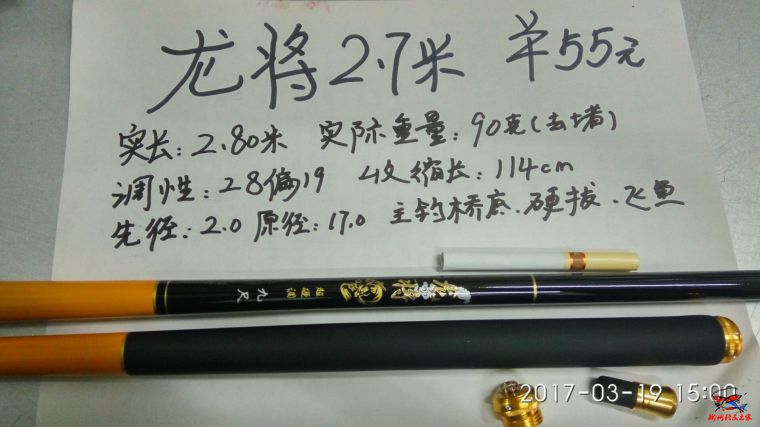 龙将2.7米 羊55元
实长:2.80米 实际重量:90克(去堵)
调性:28偏19 收缩长:114cm
先径:2.0 原径:17.0 主钓桥底.硬拔.飞鱼
九尺
2017-03-19 15:00